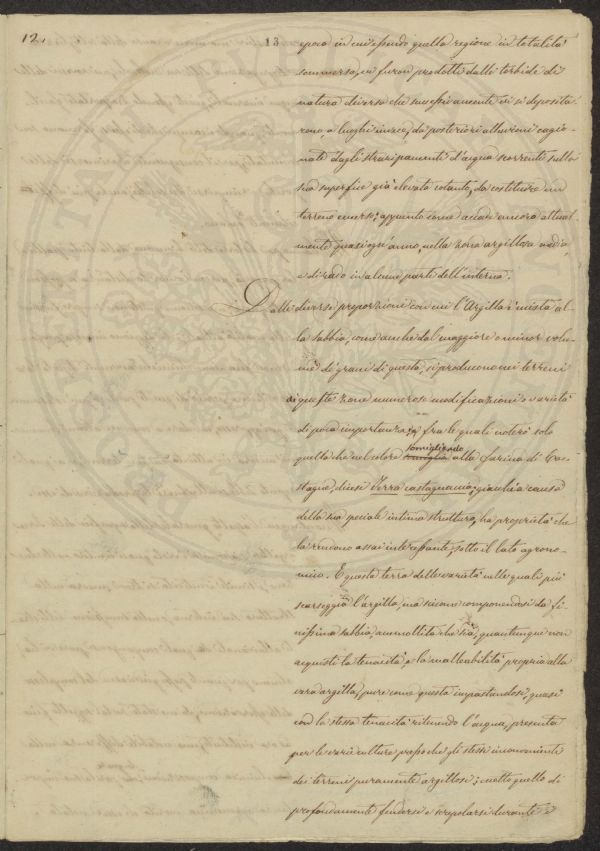 12.
13
epoca in cui essendo quella regione in totalità
sommersa, en furon prodotti dalle torbide di
natura diversa che successivamente vi si deposita
rono, a luoghi invece, da posteriori alluvioni cagio-
nate dagli straripamenti d'acqua scorrente sulla
sua superficie già elevata cotanto, da costituire un
terreno emerso; appunto come accade ancora attual-
mente quasi ogn'anno, nella zona argillosa media,
e di rado in alcune parte dell'interna.
Dalle diverse proporzioni con cui l'Argilla è mista al-
la Sabbia, come anche dal maggiore o minor volu-
me dei grani di questa, si producono nei terreni
di queste zone numerose modificazioni o varietà
di poca importanza; fra le quali noterò solo
quella che nel colore somigliando alla farina di Ca-
stagne, dicesi Terra castagnina; giacchè a causa
della sua speciale intima struttura, ha proprietà che
la rendono assai interessante, sotto il lato agrono-
mico. È questa terra delle varietà nelle quali più
scarseggia l'argilla, ma siccome componendosi da fi-
nissima sabbia, ammollita che sia, quantunque non
acquisti la tenacità, e la malleabilità propria alla
vera argilla, pure come questa impastandosi, quasi
con la stessa tenacità ritenendo l'acqua, presenta
per le varie culture presso che gli stessi inconvenienti
dei terreni puramente argillosi; meno quello di
profondamente fendersi e screpolarsi durante i